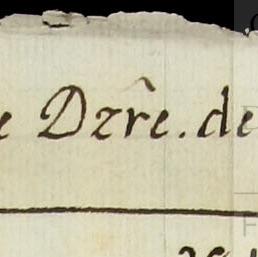 e Dzr̂e. de